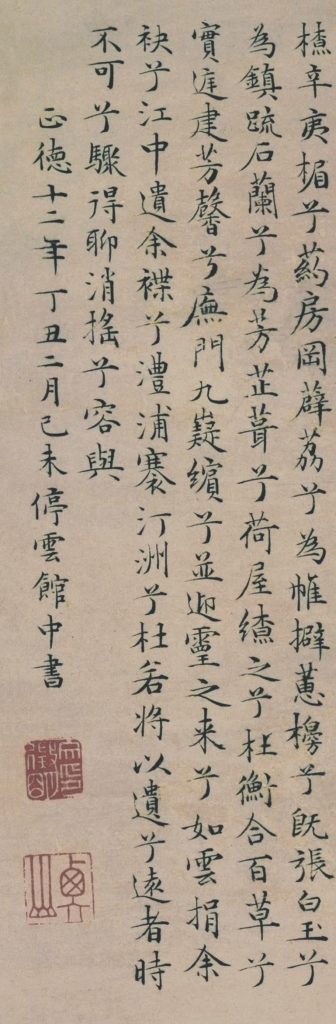 橑辛夷楣兮葯房岡薜荔兮為帷擗蕙櫋兮既張白玉兮
為鎮疏石蘭兮為芳芷葺兮荷屋繚之兮杜衡合百草兮
實庭建芳馨兮廡門九嶷繽兮並迎靈之来兮如雲捐余
袂兮江中遺余褋兮澧浦搴汀洲兮杜若将以遺兮遠者時
不可兮驟得聊消搖兮容與
正德十二年丁丑二月己未停雲館中書